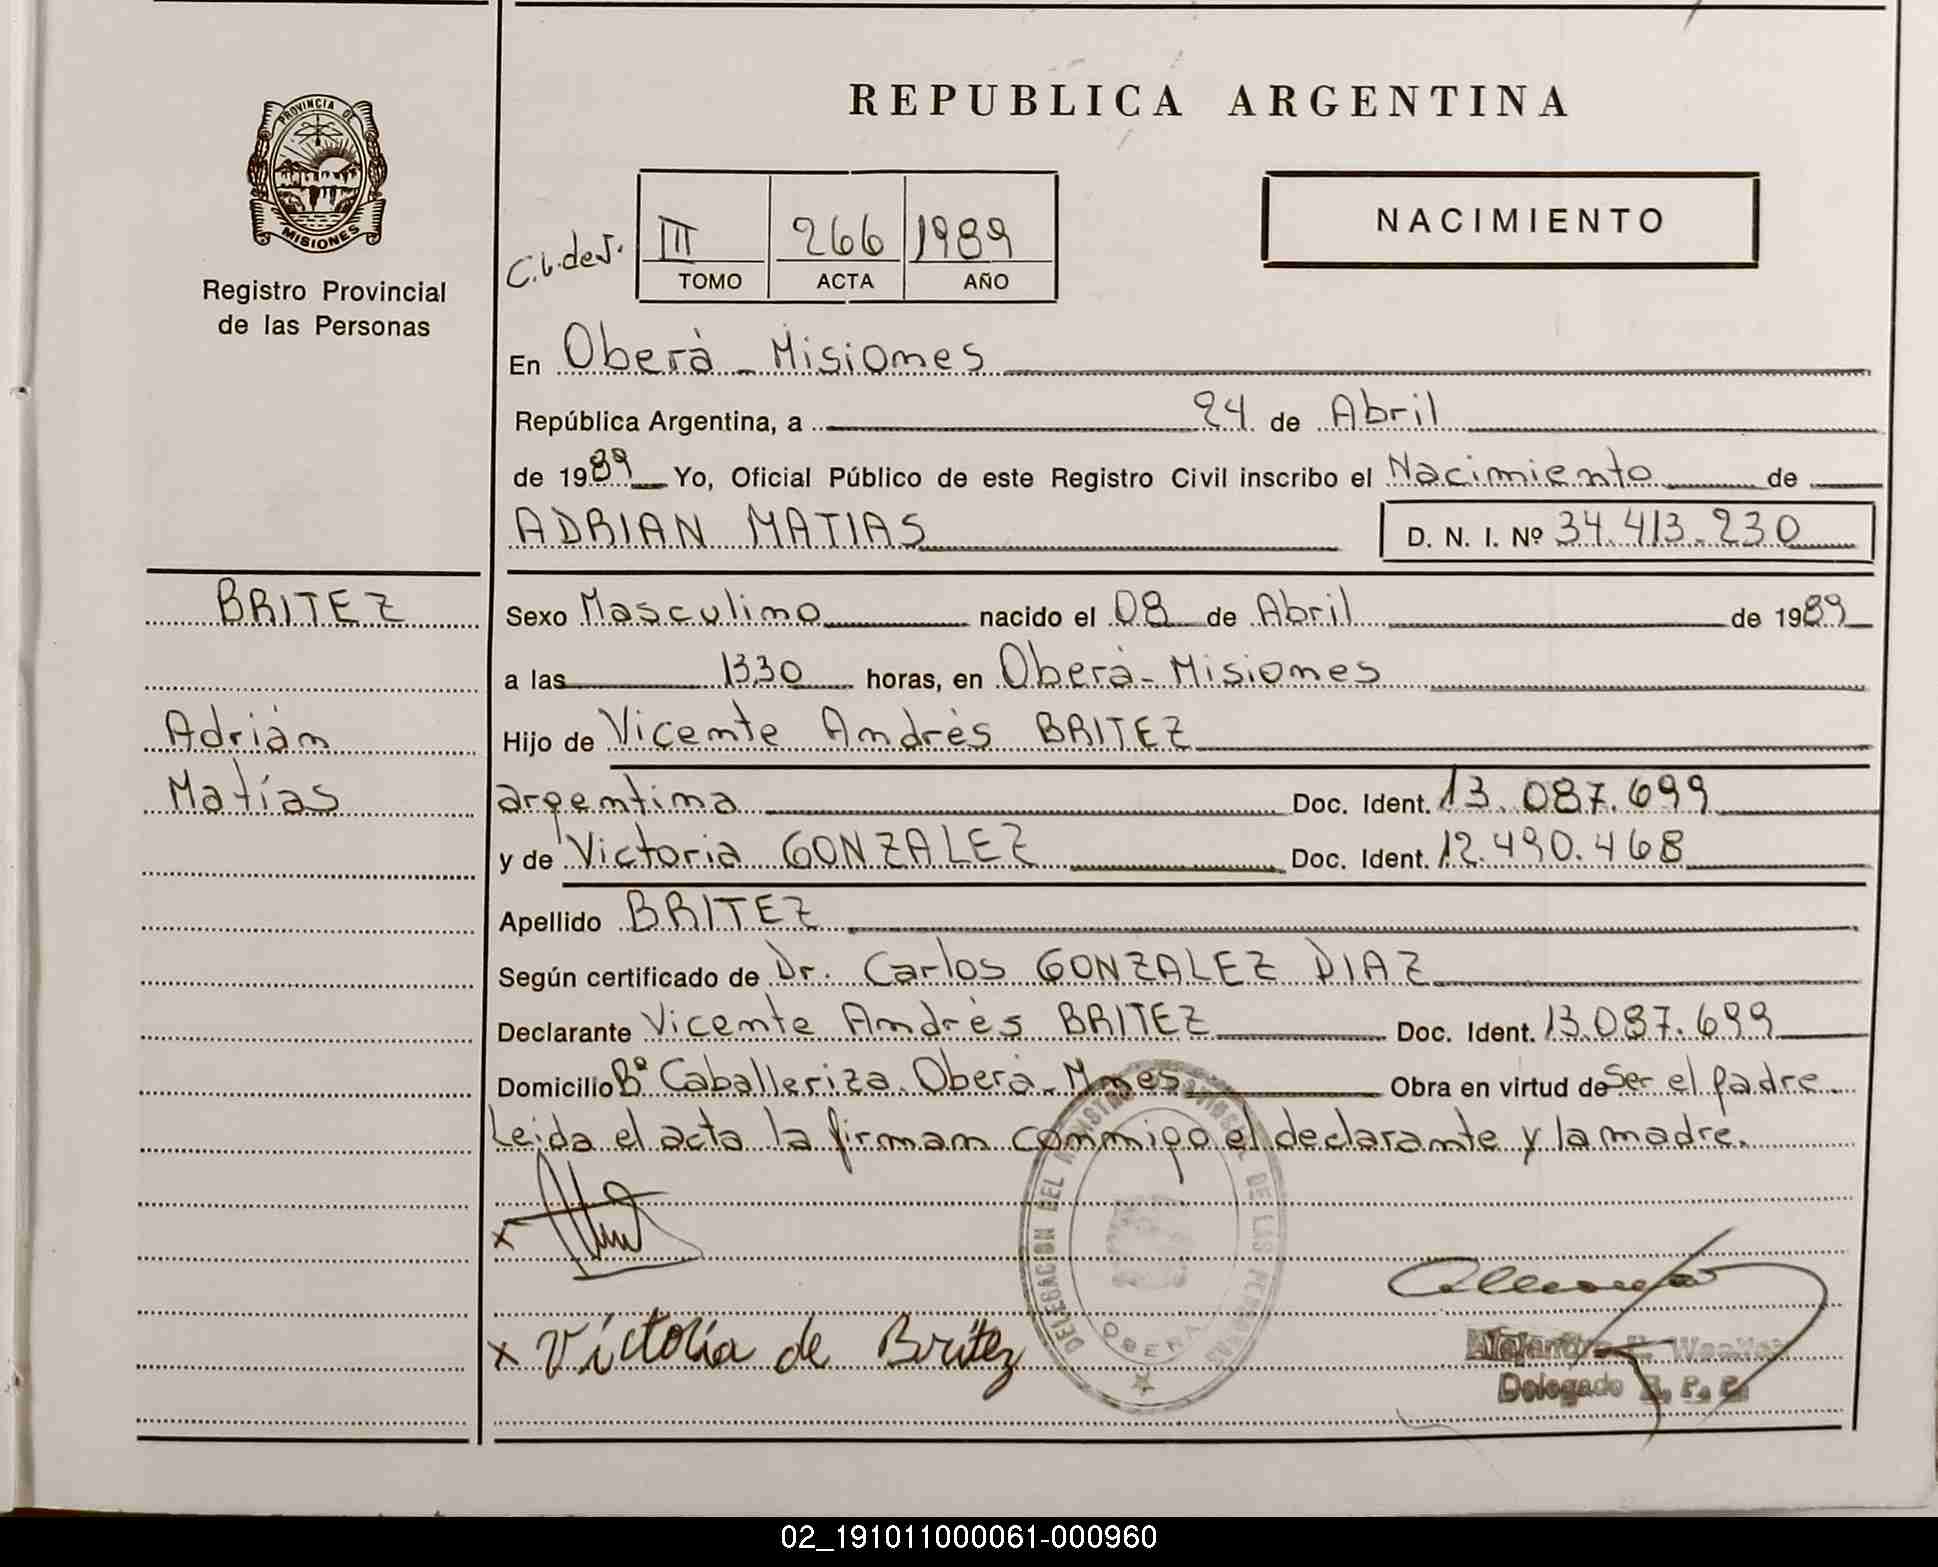 REPUBLICA ARGENTINA
PROVINCIA DE
MISIONES
Registro Provincial
de las Personas
C.I. de J.
III 266 1989
TOMO ACTA AÑO
NACIMIENTO
En Oberà - Misiones
República Argentina, a 24 de Abril
de 1989 Yo, Oficial Público de este Registro Civil inscribo el Nacimiento de
ADRIAN MATIAS D. N. I. Nº 34.413.230
BRITEZ
Sexo Masculino nacido el 08 de Abril de 1989
a las 13,30 horas, en Oberà - Misiones
Adrián
Hijo de Vicente Andrès BRITEZ
Matías
argentina Doc. Ident. 13.087.699
y de Victoria GONZALEZ Doc. Ident. 12.490.468
Apellido BRITEZ
Según certificado de Dr. Carlos GONZALEZ DIAZ
Declarante Vicente Andrès BRITEZ Doc. Ident. 13.087.699
Domicilio Bº Caballeriza. Oberà - Mnes Obra en virtud de Ser el padre
Leida el acta la firman conmigo el declarante y la madre.
DELEGACION DEL REGISTRO PROVINCIAL DE LAS PERSONAS
OBERA
x
x Victoria de Britez
Delegado R. P. P.
02_191011000061-000960